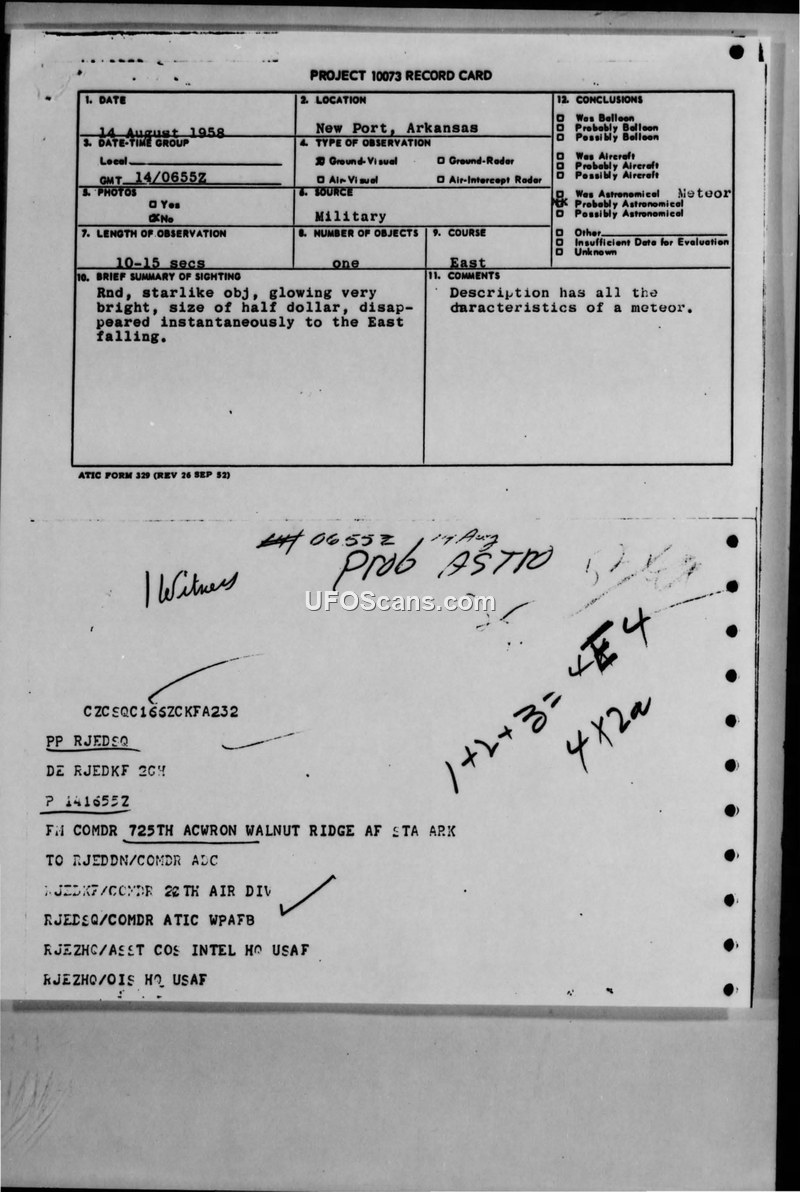 PROJECT 10073 RECORD CARD
1. DATE
14 August 1958
2. LOCATION
New Port, Arkansas
12. CONCLUSIONS
Was Balloon
Probably Balloon
Possibly Balloon
Was Aircraft
Probably Aircraft
Possibly Aircraft
Was Astronomical Meteor
Probably Astronomical
Possibly Astronomical
Other
Insufficient Data for Evaluation
Unknown
3. DATE-TIME GROUP
Local
GMT 14/0655Z
4. TYPE OF OBSERVATION
Ground-Visual Ground-Radar
Air-Visual Air-Intercept Radar
5. PHOTOS
Yes
No
6. SOURCE
Military
7. LENGTH OF OBSERVATION
10-15 secs
8. NUMBER OF OBJECTS
one
9. COURSE
East
10. BRIEF SUMMARY OF SIGHTING
Rnd, starlike obj, glowing very
bright, size of half dollar, disap-
peared instantaneously to the East
falling.
11. COMMENTS
Description has all the
characteristics of a meteor.
ATIC FORM 329 (REV 26 SEP 52)
0655Z 14 Aug
Prob ASTRO
1 Witness
UFOScans.com
1+2+3= 4
4X2a
CZCSQC166ZCKFA232
PP RJEDSQ
DE RJEDKF
P 141655Z
FM COMDR 725TH ACWRON WALNUT RIDGE AF STA ARK
TO RJEDDN/COMDR ADC
RJEDKF/COMDR 20TH AIR DIV
RJEDSQ/COMDR ATIC WPAFB
RJEZHQ/ASST COS INTEL HQ USAF
RJEZHQ/OIS HQ USAF